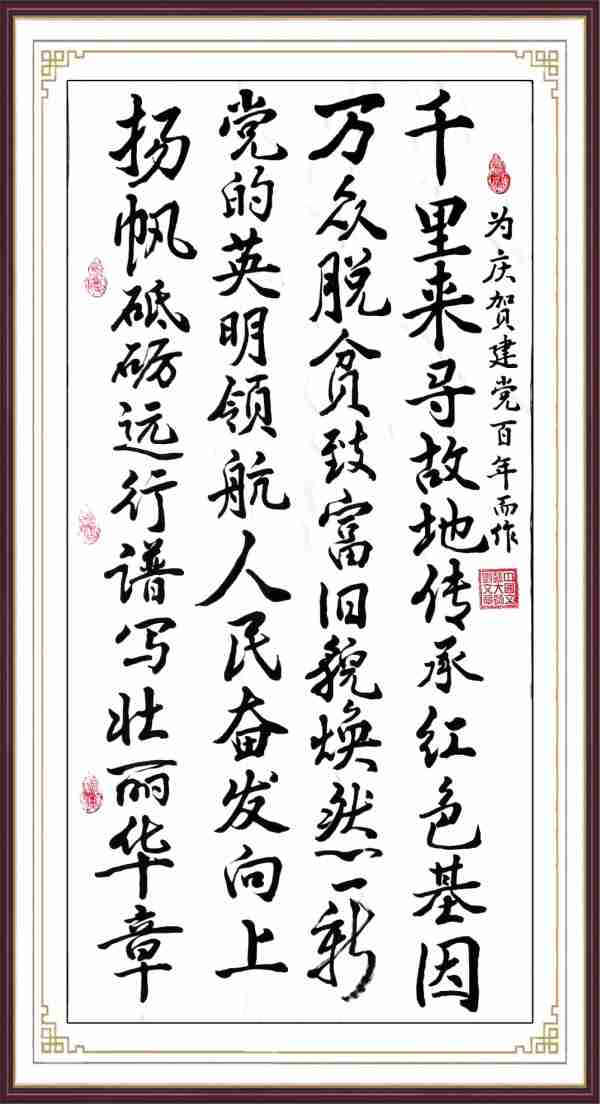 为庆贺建党百年而作
千里来寻故地传承红色基因
万众脱贫致富旧貌焕然一新
党的英明领航人民奋发向上
扬帆砥砺远行谱写壮丽华章